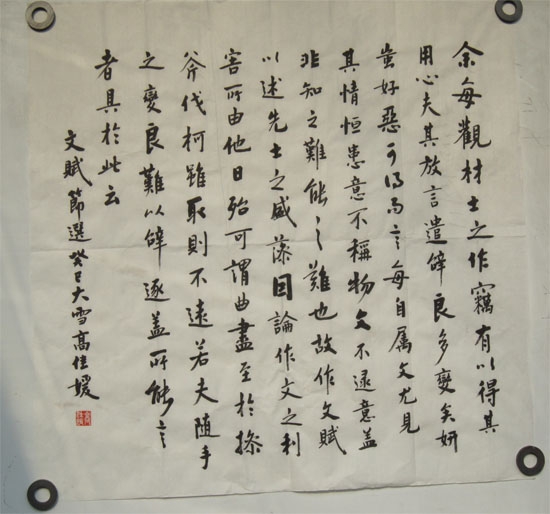 余每觀材士之作竊有以得其
用心夫其放言遣辭良多變矣妍
蚩好惡可得而言每自属文尤見
其情恒患意不稱物文不逮意盖
非知之難能之難也故作文賦
以述先士之盛藻因論作文之利
害所由他日殆可謂曲盡至於操
斧伐柯雖取則不遠若夫随手
之變良難以辭逐盖所能言
者具於此云
文賦節選癸巳大雪高佳媛